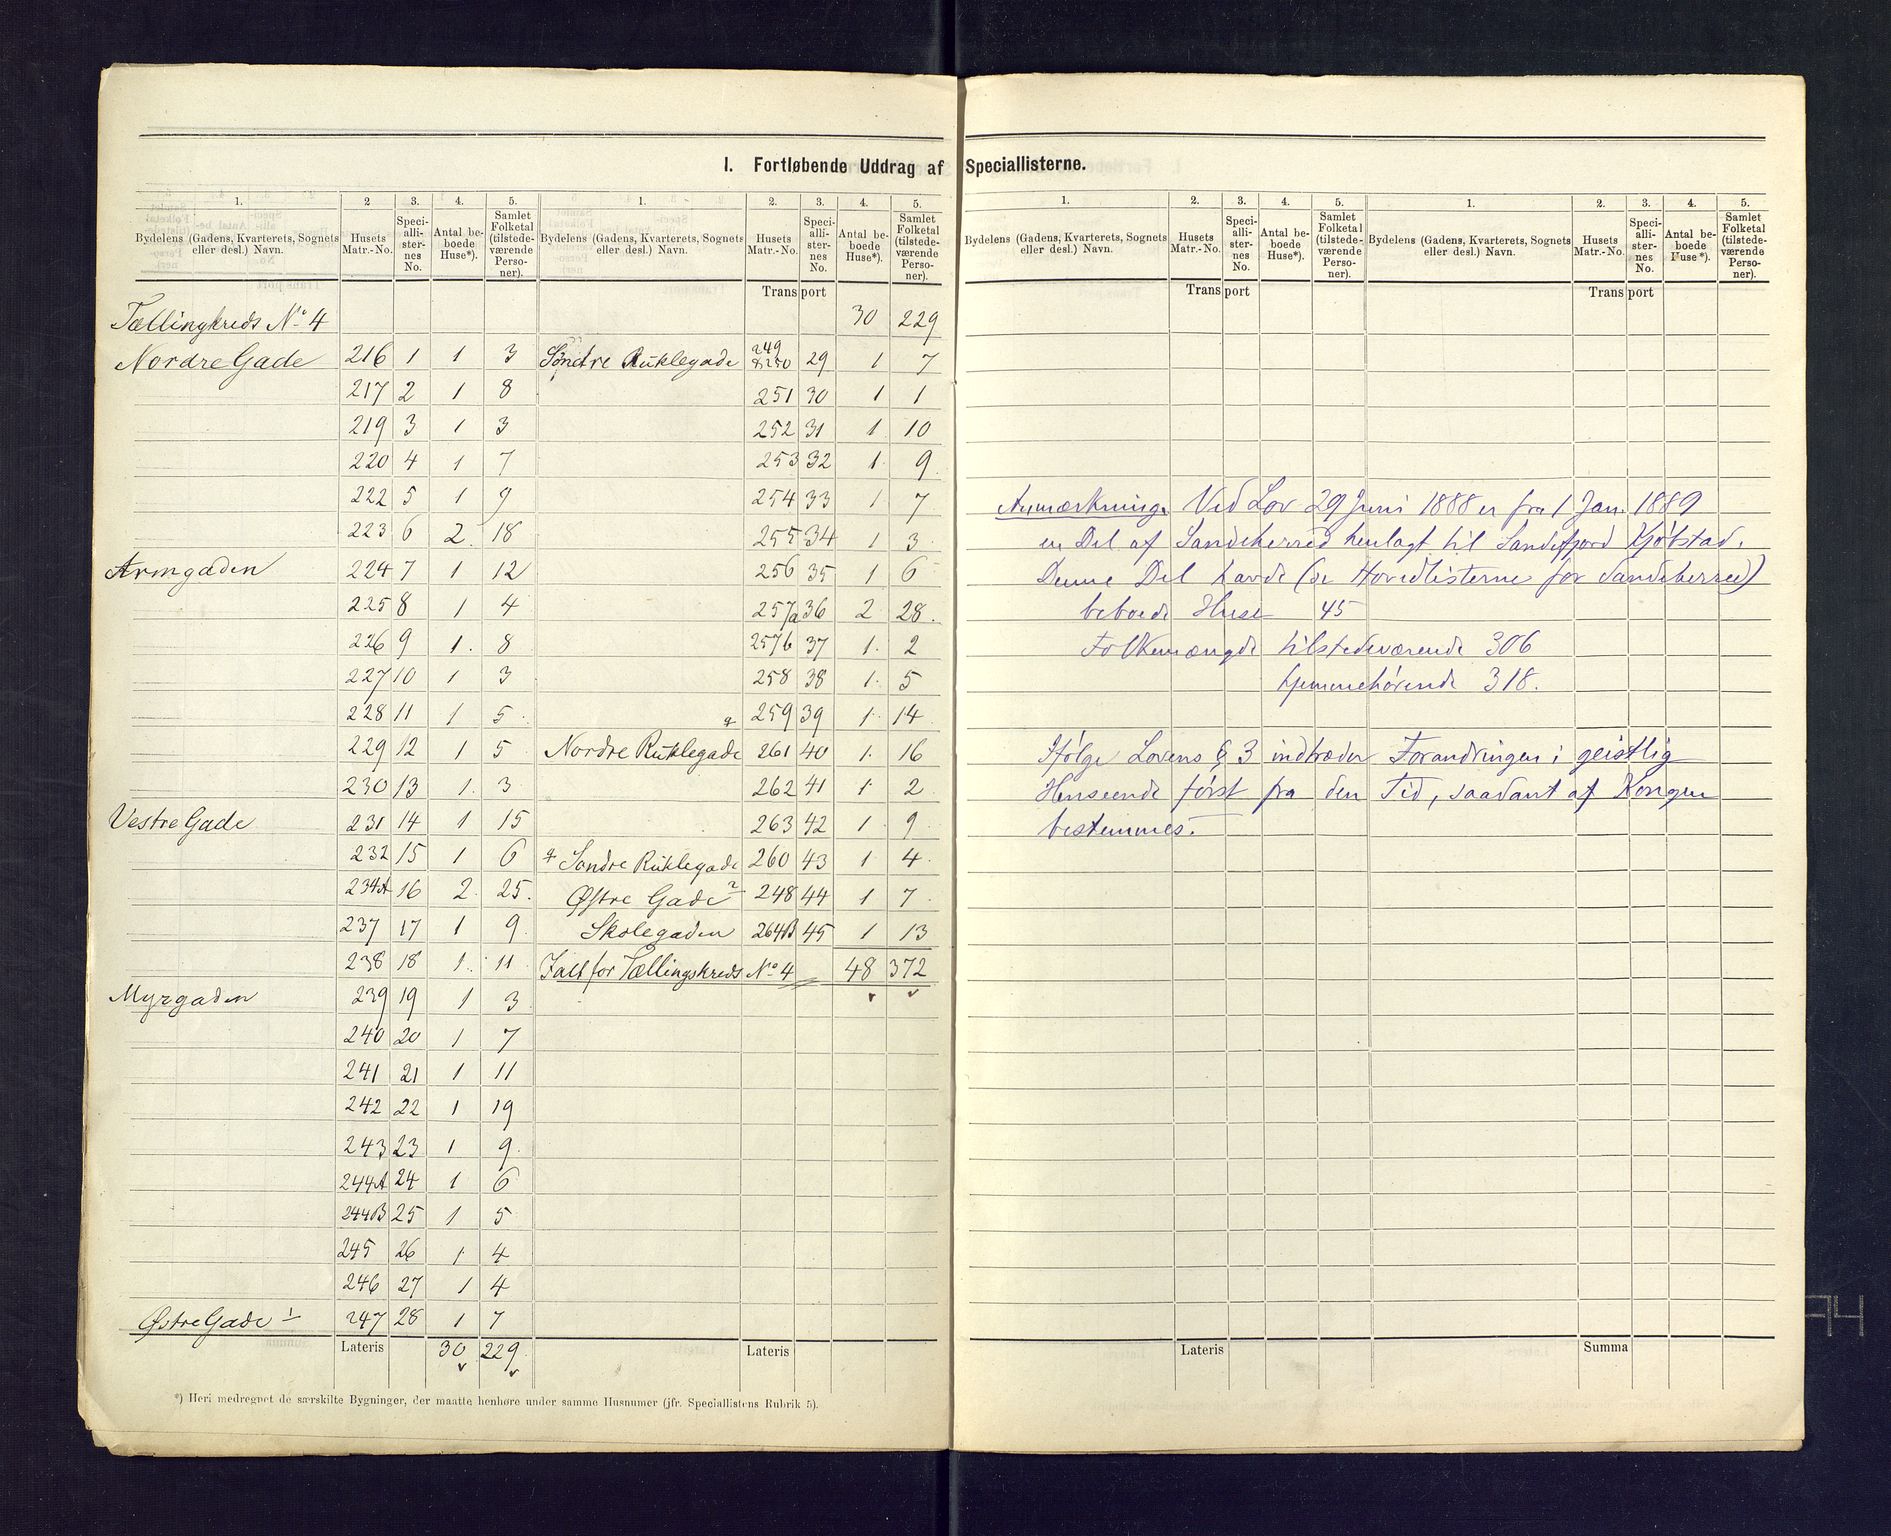 I. Fortløbende Uddrag af Speciallisterne.
1. 2 3. 4. 5. 1. 2. 3. 4. 5.
Bydelens (Gadens, Kvarterets, Sognets eller desl.) Navn. Husets Matr.-No. Speciallisternes No. Antal beboede Huse*). Samlet Folketal (tilstedeværende Personer). Bydelens (Gadens, Kvarterets, Sognets eller desl.) Navn. Husets Matr.-No. Speciallisternes No. Antal beboede Huse*). Samlet Folketal (tilstedeværende Personer).
Tællingkreds No 4
Nordre Gade 216 1 1 3
217 2 1 8
219 3 1 3
220 4 1 7
222 5 1 9
223 6 2 18
Armgaden 224 7 1 12
225 8 1 4
226 9 1 8
227 10 1 3
228 11 1 5
229 12 1 5
230 13 1 3
Vestre Gade 231 14 1 15
232 15 1 6
234A 16 2 25
237 17 1 9
238 18 1 11
Myrgaden 239 19 1 3
240 20 1 7
241 21 1 11
242 22 1 19
243 23 1 9
244A 24 1 6
244B 25 1 5
245 26 1 4
246 27 1 4
Østre Gade 1 247 28 1 7
Lateris 30 229
Transport 30 229
Søndre Ruklegade 249 & 250 29 1 7
251 30 1 1
252 31 1 10
253 32 1 9
254 33 1 7
255 34 1 3
256 35 1 6
257a 36 2 28
257b 37 1 2
258 38 1 5
259 39 1 14
Nordre Ruklegade 261 40 1 16
262 41 1 2
263 42 1 9
Søndre Ruklegade 260 43 1 4
Østre Gade 2 248 44 1 7
Skolegaden 264B 45 1 13
Ialt for Tællingskreds No 4 48 372
Lateris
*) Heri medregnet de særskilte Bygninger, der maatte henhøre under samme Husnumer (jfr. Speciallistens Rubrik 5).
1. 2. 3. 4. 5. 1. 2. 3. 4. 5.
Bydelens (Gadens, Kvarterets, Sognets eller desl.) Navn. Husets Matr.-No. Speciallisternes No. Antal beboede Huse*). Samlet Folketal (tilstedeværende Personer). Bydelens (Gadens, Kvarterets, Sognets eller desl.) Navn. Husets Matr.-No. Speciallisternes No. Antal beboede Huse*). Samlet Folketal (tilstedeværende Personer).
Transport Transport
Anmærkning. Ved Lov 29 Juni 1888 er fra 1 Jan. 1889
en Del af Sandeherred henlagt til Sandefjord Kjøbstad.
Denne Del havde (se Hovedlisterne for Sandeherred)
beboede Huse 45
Folkemængde tilstedeværende 306
hjemmehørende 318.
Ifølge Lovens § 3 indtræder Forandringen i geistlig
Henseende først fra den Tid, saadant af Kongen
bestemmes.
Lateris Summa